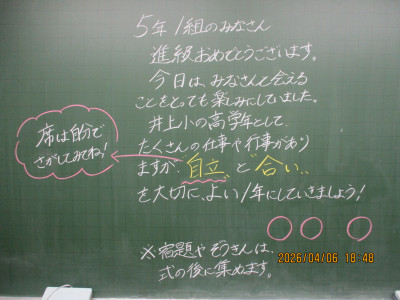 5年1組のみなさん
進級おめでとうございます。
今日は、みなさんと会える
ことをとっても楽しみにしていました。
井上小の高学年として、
たくさんの仕事や行事があり
ますが、自立 と 合い、、
を大切に、よい1年にしていきましょう!
席は自分で
さがしてみてね!
※宿題やぞうきんは、
式の後に集めます。
2026/04/06 18:48